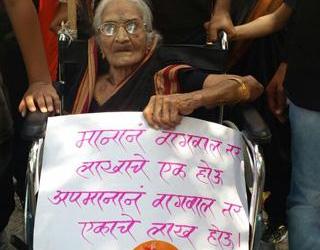 मानानं वागवाल तर
लाखाचे एक होऊ
अपमानानं वागवाल तर
एकाचे लाख होऊ!